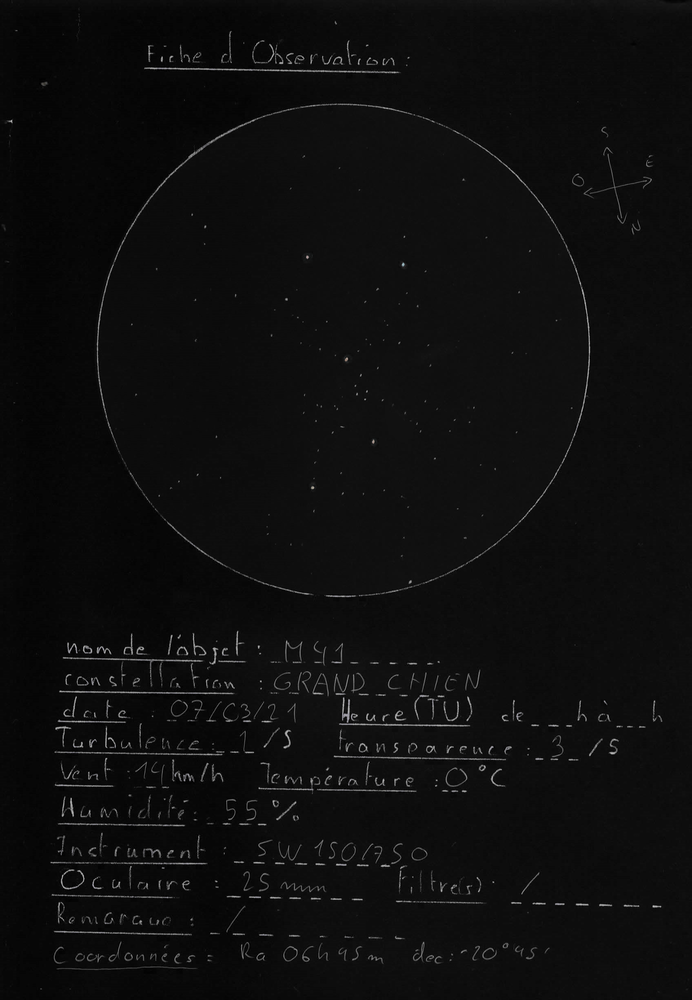 Fiche d'Observation:
S
E
O
N
nom de l'objet : M41
constellation : GRAND CHIEN
date : 07/03/21 Heure (TU) de ___h à ___h
Turbulence : 1 /5 transparence : 3 /5
Vent : 14 km/h Température : 0 °C
Humidité : 55 %
Instrument : SW 150/750
Oculaire : 25 mm Filtre(s) : /
Remarque : /
Coordonnées = Ra 06h 45m dec: -20° 45'